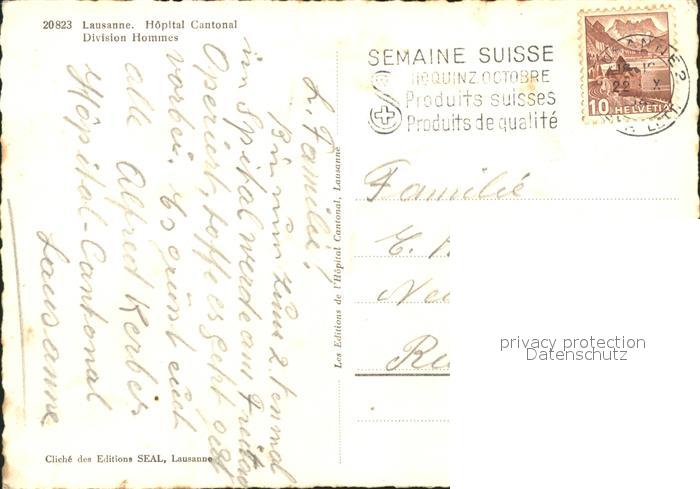 20823 Lausanne. Hôpital Cantonal
Division Hommes
SEMAINE SUISSE
IIe QUINZ. OCTOBRE
Produits suisses
Produits de qualité
10 HELVETIA
L. Familie!
Bin nun zum 2. tenmal
im Spital werde am Freitag
Operiert, hoffe es geht gut
vorbei. Es grüsst euch
alle Alfred Kerber
Hôpital-Cantonal
Lausanne
Les Editions de l'Hôpital Cantonal, Lausanne
Familie
privacy protection
Datenschutz
Cliché des Editions SEAL, Lausanne